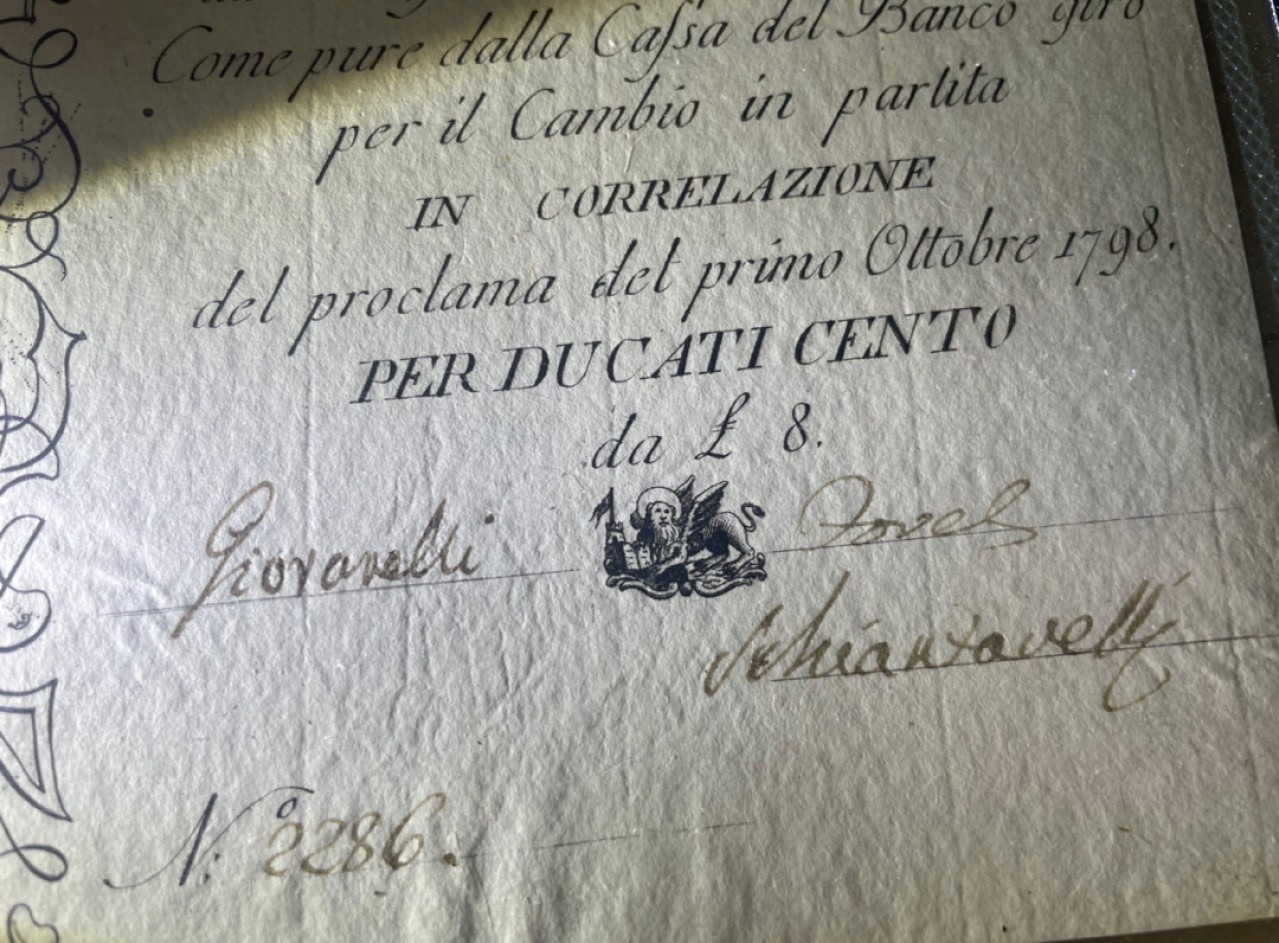 Come pure dalla Caſsa del Banco giro
per il Cambio in partita
IN CORRELAZIONE
del proclama del primo Ottobre 1798.
PER DUCATI CENTO
da £ 8.
Giovanelli
Schiantavelli
N.º 2286.